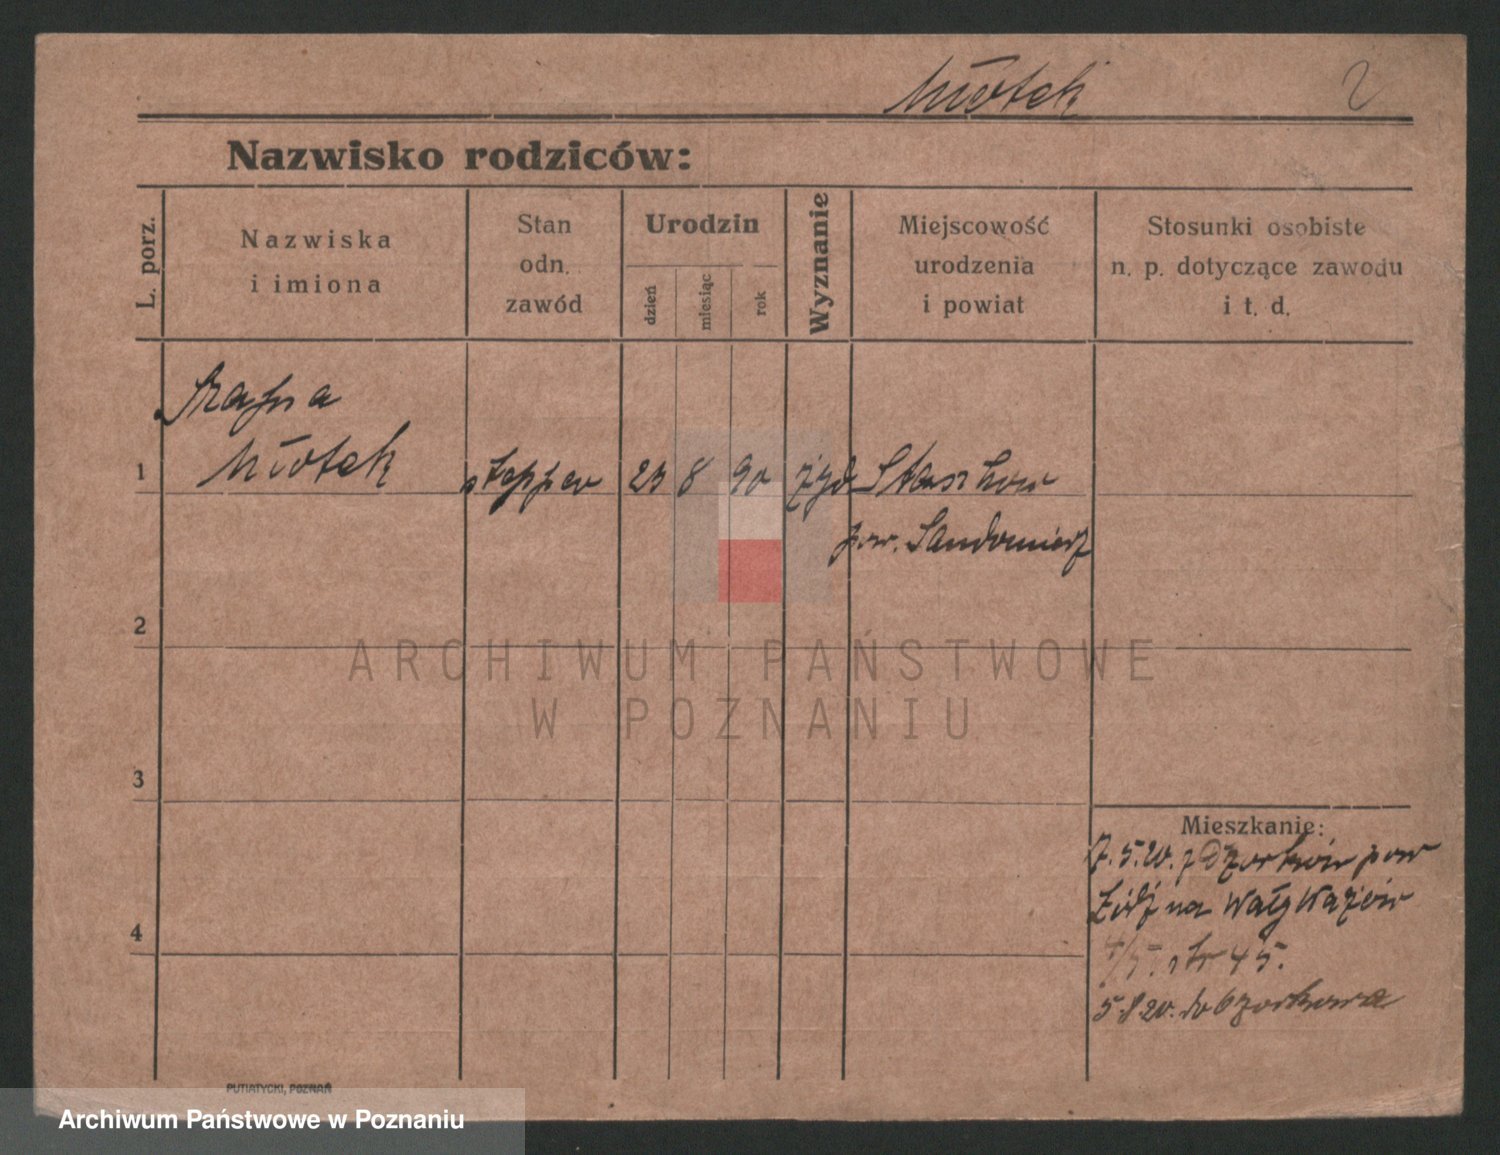 Młotek 2
Nazwisko rodziców:
L. porz.
Nazwiska
i imiona
Stan
odn.
zawód
Urodzin
dzień
miesiąc
rok
Wyznanie
Miejscowość
urodzenia
i powiat
Stosunki osobiste
n. p. dotyczące zawodu
i t. d.
Szajna
1 Młotek stepper 25 8 90 żyd Staszów
pow. Sandomierz
2
ARCHIWUM PAŃSTWOWE
W POZNANIU
3
4
Mieszkanie:
7.5.20. z Ozorków pow
Łódź na Wały
str 45.
5.8.20. do Ozorkowa
PUTIATYCKI, POZNAŃ
Archiwum Państwowe w Poznaniu